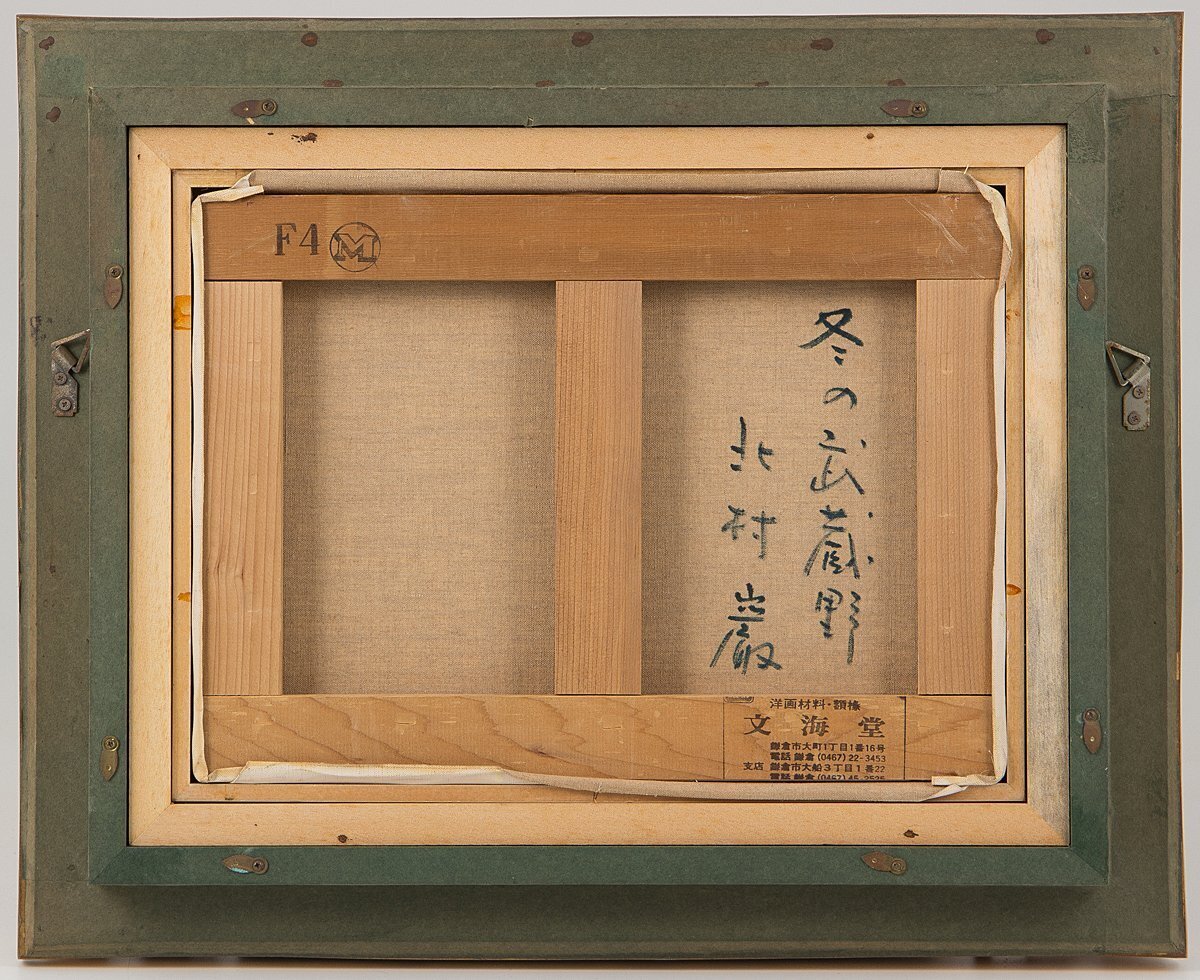 F4 M
冬の武蔵野
北村巌
洋画材料・額椽
文海堂
鎌倉市大町1丁目1番16号
電話 鎌倉(0467)22-3453
支店 鎌倉市大船3丁目1番22
電話 鎌倉(0467)45-2525